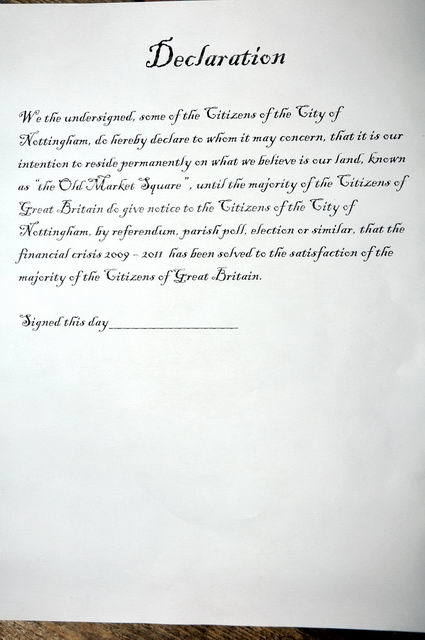 Declaration
We the undersigned, some of the Citizens of the City of
Nottingham, do hereby declare to whom it may concern, that it is our
intention to reside permanently on what we believe is our land, known
as "the Old Market Square", until the majority of the Citizens of
Great Britain do give notice to the Citizens of the City of
Nottingham, by referendum, parish poll, election or similar, that the
financial crisis 2009 - 2011 has been solved to the satisfaction of the
majority of the Citizens of Great Britain.
Signed this day____________________